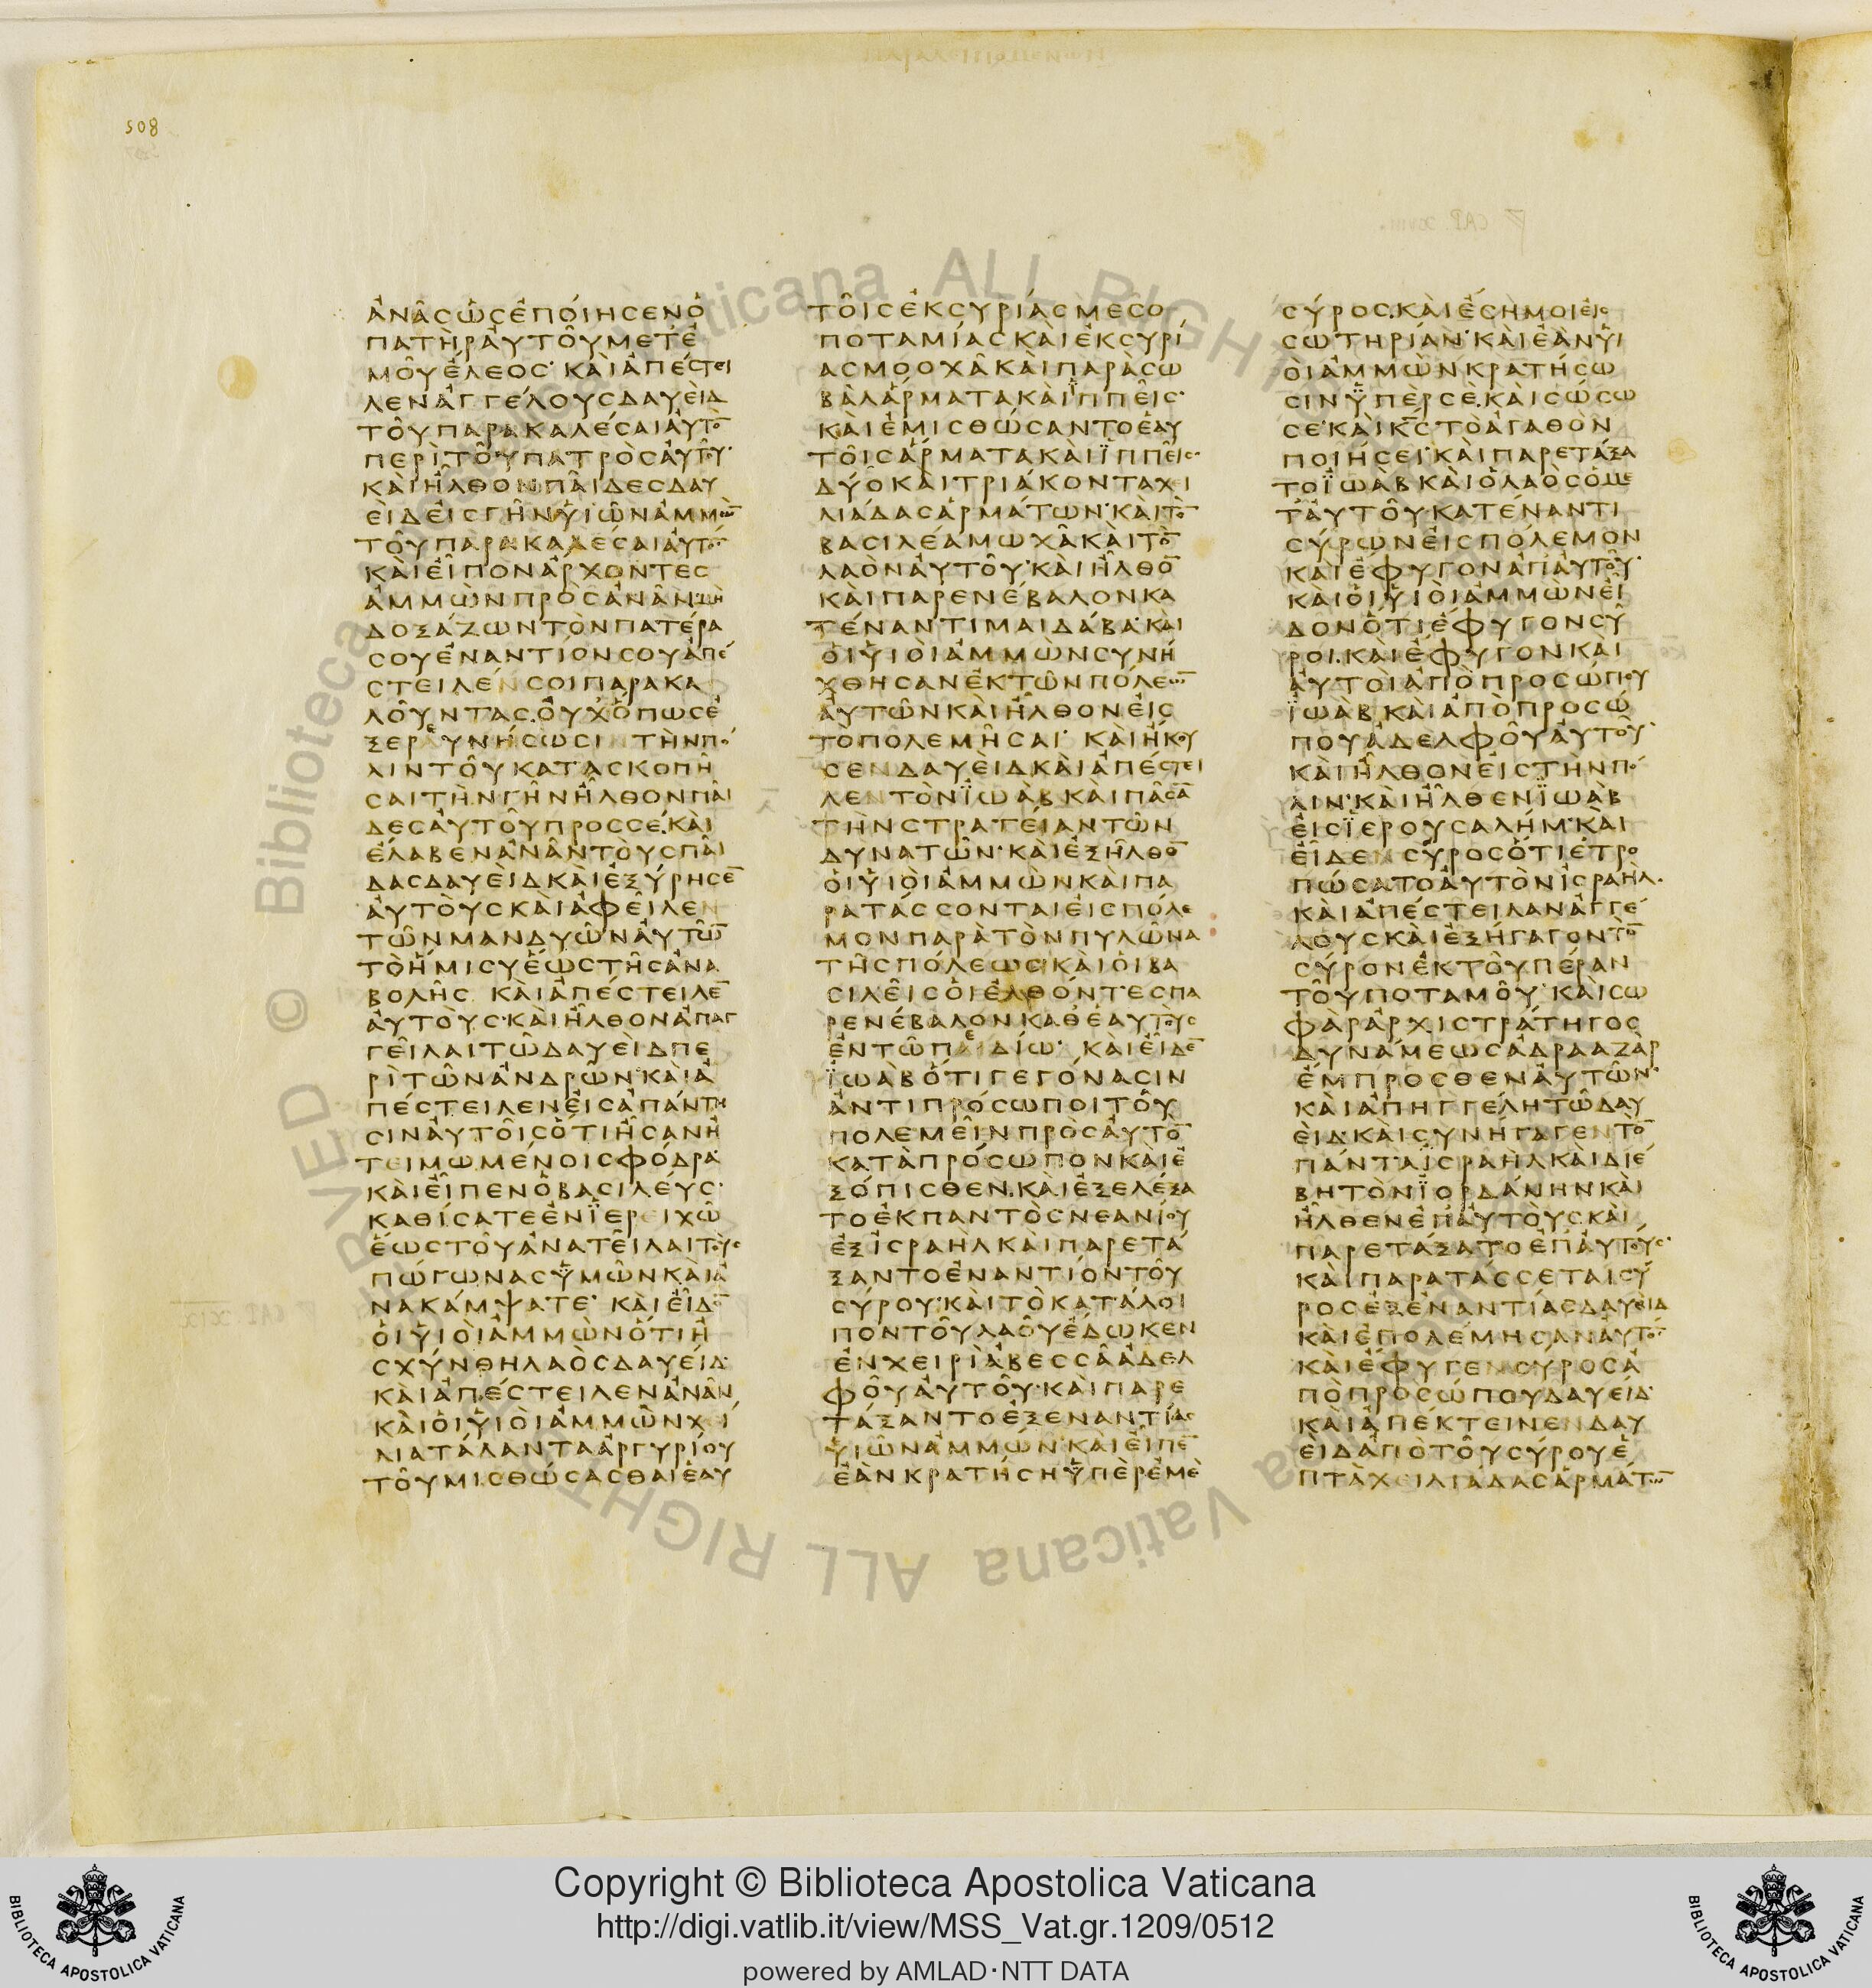 508
ἈΝᾶϹὩϹἘΠΟΊΗϹΕΝὉ
ΠΑΤῊΡΑΥΤΟῦΜΕΤΕ
ΜΟῦΕΛΕΟϹ ΚΑΙΑΠΕϹΤΕΙ
ΛΕΝΑΓΓΕΛΟΥϹΔΑΥΕΙΔ
ΤΟΥΠΑΡΑΚΑΛΕϹΑΙΑΥΤΟ̅
ΠΕΡΙΤΟΥΠΑΤΡΟϹΑΥΤΟΥ
ΚΑΙΗΛΘΟΝΠΑΙΔΕϹΔΑΥ
ΕΙΔΕΙϹΓΗΝΥΙΩΝΑΜΜΩ̅
ΤΟΥΠΑΡΑΚΑΛΕϹΑΙΑΥΤΟ̅
ΚΑΙΕΙΠΟΝΑΡΧΟΝΤΕϹ
ΑΜΜΩΝΠΡΟϹΑΝΑΝΜΗ
ΔΟΞΑΖΩΝΤΟΝΠΑΤΕΡΑ
ϹΟΥΕΝΑΝΤΙΟΝϹΟΥΑΠΕ
ϹΤΕΙΛΕΝϹΟΙΠΑΡΑΚΑ
ΛΟΥΝΤΑϹ.ΟΥΧΟΠΩϹΕ
ΞΕΡΑΥΝΗϹΩϹΙΝΤΗΝΠΟ
ΛΙΝΤΟΥΚΑΤΑϹΚΟΠΗ
ϹΑΙΤΗΝΓΗΝΗΛΘΟΝΠΑΙ
ΔΕϹΑΥΤΟΥΠΡΟϹϹΕ.ΚΑΙ
ΕΛΑΒΕΝΑΝΑΝΤΟΥϹΠΑΙ
ΔΑϹΔΑΥΕΙΔΚΑΙΕΞΥΡΗϹΕ̅
ΑΥΤΟΥϹΚΑΙΑΦΕΙΛΕΝ
ΤΩΝΜΑΝΔΥΩΝΑΥΤΩ̅
ΤΟΗΜΙϹΥΕΩϹΤΗϹΑΝΑ
ΒΟΛΗϹ ΚΑΙΑΠΕϹΤΕΙΛΕ̅
ΑΥΤΟΥϹ·ΚΑΙΗΛΘΟΝΑΠΑΓ
ΓΕΙΛΑΙΤΩΔΑΥΕΙΔΠΕ
ΡΙΤΩΝΑΝΔΡΩΝ·ΚΑΙΑ
ΠΕϹΤΕΙΛΕΝΕΙϹΑΠΑΝΤΗ
ϹΙΝΑΥΤΟΙϹΟΤΙΗϹΑΝΗ
ΤΕΙΜΩΜΕΝΟΙϹΦΟΔΡΑ·
ΚΑΙΕΙΠΕΝΟΒΑϹΙΛΕΥϹ·
ΚΑΘΙϹΑΤΕΕΝΪΕΡΕΙΧΩ
ΕΩϹΤΟΥΑΝΑΤΕΙΛΑΙΤΟΥϹ
ΠΩΓΩΝΑϹΥΜΩΝΚΑΙΑ
ΝΑΚΑΜΨΑΤΕ· ΚΑΙΕΙΔΟ̅
ΟΙΥΙΟΙΑΜΜΩΝΟΤΙΗ
ϹΧΥΝΘΗΛΑΟϹΔΑΥΕΙΔ·
ΚΑΙΑΠΕϹΤΕΙΛΕΝΑΝΑΝ
ΚΑΙΟΙΥΙΟΙΑΜΜΩΝΧΕΙ
ΛΙΑΤΑΛΑΝΤΑΑΡΓΥΡΙΟΥ
ΤΟΥΜΙϹΘΩϹΑϹΘΑΙΕΑΥ
ΤΟΙϹΕΚϹΥΡΙΑϹΜΕϹΟ
ΠΟΤΑΜΙΑϹΚΑΙΕΚϹΥΡΙ
ΑϹΜΟΟΧΑΚΑΙΠΑΡΑϹΩ
ΒΑΛΑΡΜΑΤΑΚΑΙΪΠΠΕΙϹ·
ΚΑΙΕΜΙϹΘΩϹΑΝΤΟΕΑΥ
ΤΟΙϹΑΡΜΑΤΑΚΑΙΪΠΠΕΙϹ·
ΔΥΟΚΑΙΤΡΙΑΚΟΝΤΑΧΕΙ
ΛΙΑΔΑϹΑΡΜΑΤΩΝ·ΚΑΙΤΟ̅
ΒΑϹΙΛΕΑΜΩΧΑΚΑΙΤΟ̅
ΛΑΟΝΑΥΤΟΥ·ΚΑΙΗΛΘΟ̅
ΚΑΙΠΑΡΕΝΕΒΑΛΟΝΚΑ
ΤΕΝΑΝΤΙΜΑΙΔΑΒΑ·ΚΑΙ
ΟΙΥΙΟΙΑΜΜΩΝϹΥΝΗ
ΧΘΗϹΑΝΕΚΤΩΝΠΟΛΕΩ̅
ΑΥΤΩΝΚΑΙΗΛΘΟΝΕΙϹ
ΤΟΠΟΛΕΜΗϹΑΙ· ΚΑΙΗΚΟΥ
ϹΕΝΔΑΥΕΙΔΚΑΙΑΠΕϹΤΕΙ
ΛΕΝΤΟΝΪΩΑΒΚΑΙΠΑϹΑ̅
ΤΗΝϹΤΡΑΤΕΙΑΝΤΩΝ
ΔΥΝΑΤΩΝ·ΚΑΙΕΞΗΛΘΟ̅
ΟΙΥΙΟΙΑΜΜΩΝΚΑΙΠΑ
ΡΑΤΑϹϹΟΝΤΑΙΕΙϹΠΟΛΕ
ΜΟΝΠΑΡΑΤΟΝΠΥΛΩΝΑ
ΤΗϹΠΟΛΕΩϹΚΑΙΟΙΒΑ
ϹΙΛΕΙϹΟΙΕΛΘΟΝΤΕϹΠΑ
ΡΕΝΕΒΑΛΟΝΚΑΘΕΑΥΤΟΥϹ
ΕΝΤΩΠΕΔΙΩ· ΚΑΙΕΙΔΕ̅
ΪΩΑΒΟΤΙΓΕΓΟΝΑϹΙΝ
ΑΝΤΙΠΡΟϹΩΠΟΙΤΟΥ
ΠΟΛΕΜΕΙΝΠΡΟϹΑΥΤΟ̅
ΚΑΤΑΠΡΟϹΩΠΟΝΚΑΙΕ
ΞΟΠΙϹΘΕΝ.ΚΑΙΕΞΕΛΕΞΑ
ΤΟΕΚΠΑΝΤΟϹΝΕΑΝΙΟΥ
ΕΞΙϹΡΑΗΛΚΑΙΠΑΡΕΤΑ
ΞΑΝΤΟΕΝΑΝΤΙΟΝΤΟΥ
ϹΥΡΟΥ·ΚΑΙΤΟΚΑΤΑΛΟΙ
ΠΟΝΤΟΥΛΑΟΥΕΔΩΚΕΝ
ΕΝΧΕΙΡΙΑΒΕϹϹΑΑΔΕΛ
ΦΟΥΑΥΤΟΥ·ΚΑΙΠΑΡΕ
ΤΑΞΑΝΤΟΕΞΕΝΑΝΤΙΑϹ
ΥΙΩΝΑΜΜΩΝ·ΚΑΙΕΙΠΕ̅
ΕΑΝΚΡΑΤΗϹΗΥΠΕΡΕΜΕ
ϹΥΡΟϹ.ΚΑΙΕϹΗΜΟΙΕΙϹ
ϹΩΤΗΡΙΑΝ·ΚΑΙΕΑΝΥΙ
ΟΙΑΜΜΩΝΚΡΑΤΗϹΩ
ϹΙΝΥΠΕΡϹΕ.ΚΑΙϹΩϹΩ
ϹΕ·ΚΑΙΚ̅Ϲ̅ΤΟΑΓΑΘΟΝ
ΠΟΙΗϹΕΙ·ΚΑΙΠΑΡΕΤΑΞΑ
ΤΟΪΩΑΒΚΑΙΟΛΑΟϹΟΜΕ
ΤΑΥΤΟΥΚΑΤΕΝΑΝΤΙ
ϹΥΡΩΝΕΙϹΠΟΛΕΜΟΝ
ΚΑΙΕΦΥΓΟΝΑΠΑΥΤΟΥ·
ΚΑΙΟΙΥΙΟΙΑΜΜΩΝΕΙ
ΔΟΝΟΤΙΕΦΥΓΟΝϹΥ
ΡΟΙ.ΚΑΙΕΦΥΓΟΝΚΑΙ
ΑΥΤΟΙΑΠΟΠΡΟϹΩΠΟΥ
ΪΩΑΒΚΑΙΑΠΟΠΡΟϹΩ
ΠΟΥΑΔΕΛΦΟΥΑΥΤΟΥ·
ΚΑΙΗΛΘΟΝΕΙϹΤΗΝΠΟ
ΛΙΝ·ΚΑΙΗΛΘΕΝΪΩΑΒ
ΕΙϹΪΕΡΟΥϹΑΛΗΜ·ΚΑΙ
ΕΙΔΕΝϹΥΡΟϹΟΤΙΕΤΡΟ
ΠΩϹΑΤΟΑΥΤΟΝΙϹΡΑΗΛ.
ΚΑΙΑΠΕϹΤΕΙΛΑΝΑΓΓΕ
ΛΟΥϹΚΑΙΕΞΗΓΑΓΟΝΤΟ̅
ϹΥΡΟΝΕΚΤΟΥΠΕΡΑΝ
ΤΟΥΠΟΤΑΜΟΥ·ΚΑΙϹΩ
ΦΑΡΑΡΧΙϹΤΡΑΤΗΓΟϹ
ΔΥΝΑΜΕΩϹΑΔΡΑΑΖΑΡ
ΕΜΠΡΟϹΘΕΝΑΥΤΩΝ·
ΚΑΙΑΠΗΓΓΕΛΗΤΩΔΑΥ
ΕΙΔ·ΚΑΙϹΥΝΗΓΑΓΕΝΤΟ̅
ΠΑΝΤΑΙϹΡΑΗΛΚΑΙΔΙΕ
ΒΗΤΟΝΪΟΡΔΑΝΗΝΚΑΙ
ΗΛΘΕΝΕΠΑΥΤΟΥϹΚΑΙ
ΠΑΡΕΤΑΞΑΤΟΕΠΑΥΤΟΥϹ·
ΚΑΙΠΑΡΑΤΑϹϹΕΤΑΙϹΥ
ΡΟϹΕΞΕΝΑΝΤΙΑϹΔΑΥΕΙΔ
ΚΑΙΕΠΟΛΕΜΗϹΑΝΑΥΤΟ̅·
ΚΑΙΕΦΥΓΕΝϹΥΡΟϹΑ
ΠΟΠΡΟϹΩΠΟΥΔΑΥΕΙΔ·
ΚΑΙΑΠΕΚΤΕΙΝΕΝΔΑΥ
ΕΙΔΑΠΟΤΟΥϹΥΡΟΥΕ
ΠΤΑΧΕΙΛΙΑΔΑϹΑΡΜΑΤΩ̅
Copyright © Biblioteca Apostolica Vaticana
http://digi.vatlib.it/view/MSS_Vat.gr.1209/0512
powered by AMLAD·NTT DATA
BIBLIOTECA APOSTOLICA VATICANA
BIBLIOTECA APOSTOLICA VATICANA